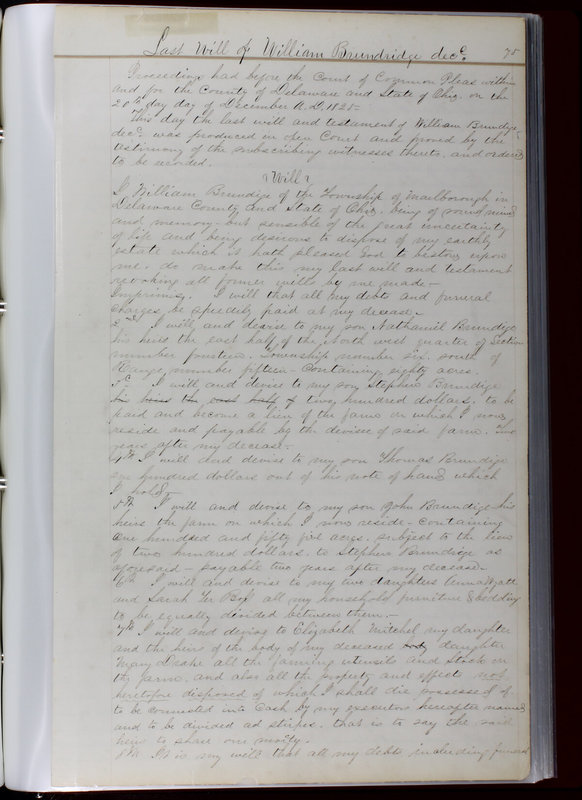 Last Will of William Brundridge decd. 75
Proceedings had before the Court of Common Pleas within
and for the County of Delaware and State of Ohio on the
20th day day of December A.D. 1825-
This day the last will and testament of William Brundige
decd. was produced in open Court and proved by the
testimony of the subscribing witnesses thereto, and ordered
to be recorded.
Will
I William Brundige of the Township of Marlborough in
Delaware County and State of Ohio, being of sound mind
and memory but sensible of the great uncertainty
of life and being desirous to dispose of my earthly
estate which it hath pleased God to bestow upon
me, do make this my last will and testament
revoking all former wills by me made-
Imprimis. I will that all my debts and funeral
charges be speedily paid at my decease.
2nd I will and devise to my son Nathaniel Brundige
his heirs the east half of the North west quarter of Section
number fourteen, Township number six, south of
Range number fifteen- Containing eighty acres.
I will and devise to my son Stephen Brundige
his heirs the east half of two hundred dollars, to be
paid and become a lien of the farm on which I now
reside and payable by the devisee of said farm. Two
years after my decease-
4th I will and devise to my son Thomas Brundige
one hundred dollars out of his note of hand which
I hold.
5th I will and devise to my son John Brundige his
heirs the farm on which I now reside- Containing
one hundred and fifty five acres, subject to the lien
of two hundred dollars, to Stephen Brundige as
aforesaid- payable two years after my decease-
6th I will and devise to my two daughters Anna Wyatt
and Sarah all my household furniture & bedding
to be equally divided between them-
7th I will and devise to Elizabeth Mitchel my daughter
and the heirs of the body of my deceased daughter
Mary Drake all the farming utensils and stock on
the farm, and also all the property and effects not
heretofore disposed of which I shall die possessed of,
to be converted into Cash by my executors hereafter named
and to be divided ad stirpes, that is to say the said
heirs to share one moity.
8th It is my will that all my debts including funeral